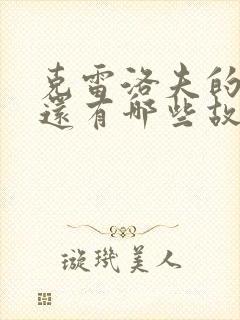 克雷洛夫的
還有哪些故
璇璣美人